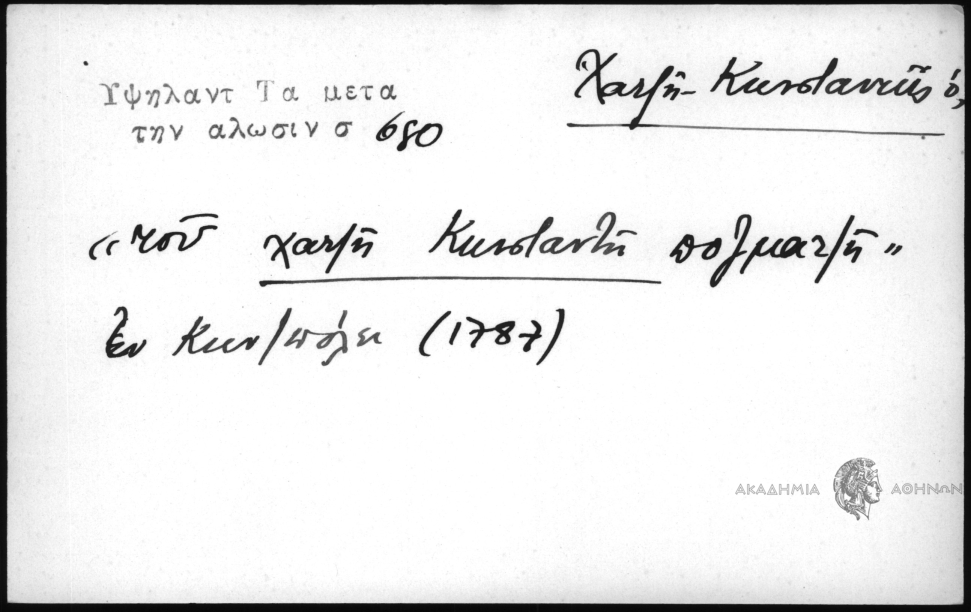 Υψηλαντ Τα μετα
την αλωσιν σ 680
Χατζῆ-Κωνσταντῆς ὁ,
«τοῦ χατζῆ Κωνσταντῆ ποζματζῆ»
ἐν Κων/πόλει (1787)
ΑΚΑΔΗΜΙΑ ΑΘΗΝΩΝ